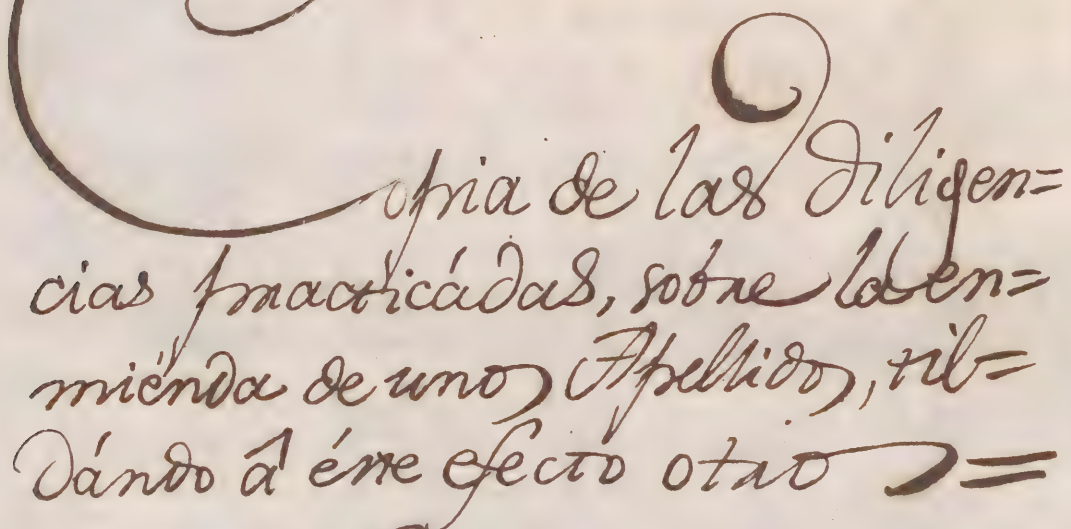 Copia de las Diligen=
cias practicádas, sobre la en=
miénda de uno Apellido, til=
dándo â éste efecto otro =